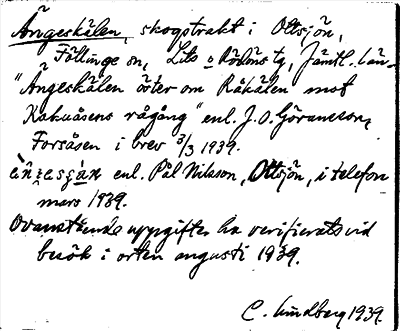 Ängeskälen, skogstrakt i Ottsjön,
Föllinge sn, Lits o Rödöns tg, Jämtl. län.
"Ängeskälen öster om Råkälen mot
Kakuåsens rågång" enl. J.O. Göransson,
Forsåsen i brev 3/3 1939.
enl. Pål Nilsson, Ottsjön, i telefon
mars 1939.
Ovanstående uppgifter ha verifierats vid
besök i orten augusti 1939.
C. Lindberg 1939.